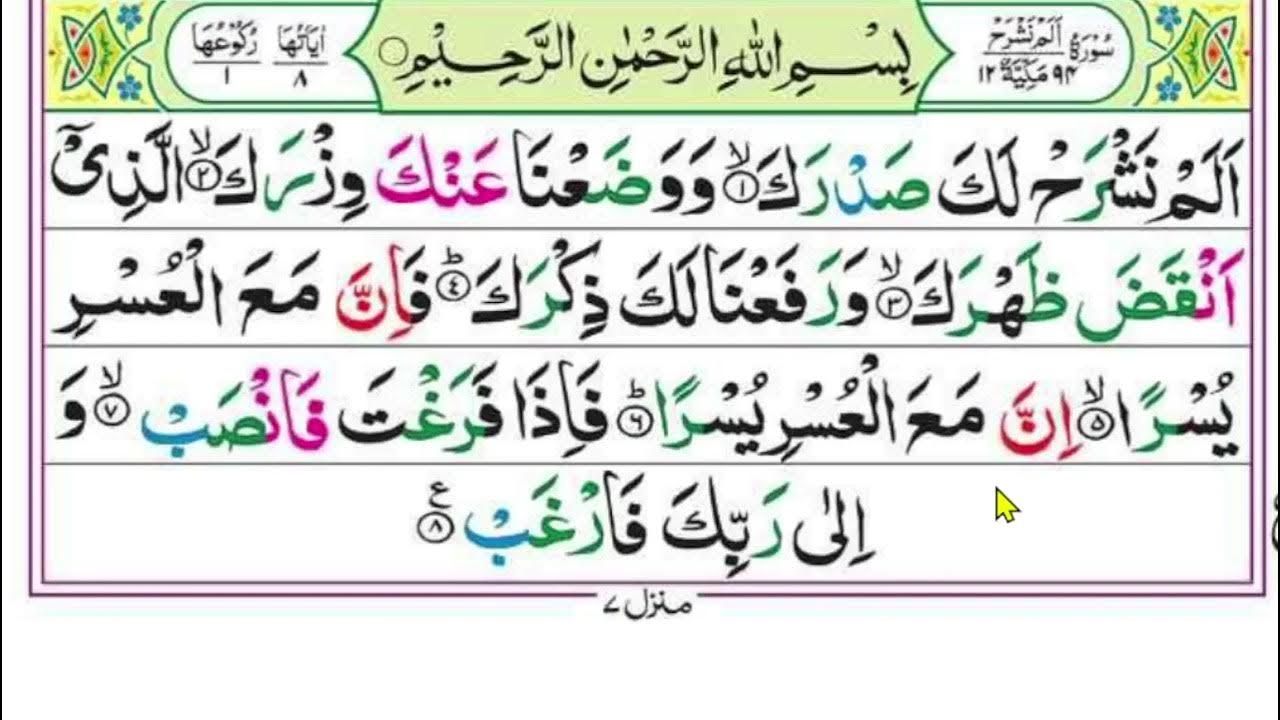 سُوْرَةُ اَلَمْ نَشْرَحْ
٩٤ مَكِّيَّةٌ ١٢
بِسْمِ اللهِ الرَّحْمٰنِ الرَّحِيْمِ
اٰيَاتُهَا ٨
رُكُوْعُهَا ١
اَلَمْ نَشْرَحْ لَكَ صَدْرَكَ ۙ﴿١﴾ وَوَضَعْنَا عَنْكَ وِزْرَكَ ۙ﴿٢﴾ الَّذِىْٓ
اَنْقَضَ ظَهْرَكَ ۙ﴿٣﴾ وَرَفَعْنَا لَكَ ذِكْرَكَ ؕ﴿٤﴾ فَاِنَّ مَعَ الْعُسْرِ
يُسْرًا ۙ﴿٥﴾ اِنَّ مَعَ الْعُسْرِ يُسْرًا ؕ﴿٦﴾ فَاِذَا فَرَغْتَ فَانْصَبْ ۙ﴿٧﴾ وَ
اِلٰى رَبِّكَ فَارْغَبْ ﴿٨﴾ ع
منزل ٧